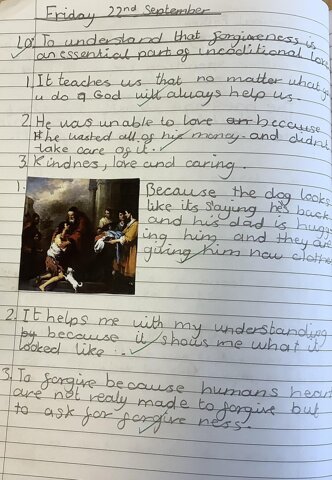 Friday 22nd September
LO: To understand that forgiveness is
an essential part of incoditional love
1. It teaches us that no matter what
u do God will always help us.
2. He was unable to love because
he wasted all of his money and didn't
take care of it.
3. Kindness, love and caring.
1. Because the dog looks
like its saying he's back
and his dad is hugg
ing him and they are
giving him new clothes
2. It helps me with my understanding
because it shows me what it
looked like.
3. To forgive because humans heart
are not realy made to forgive but
to ask for forgive ness.